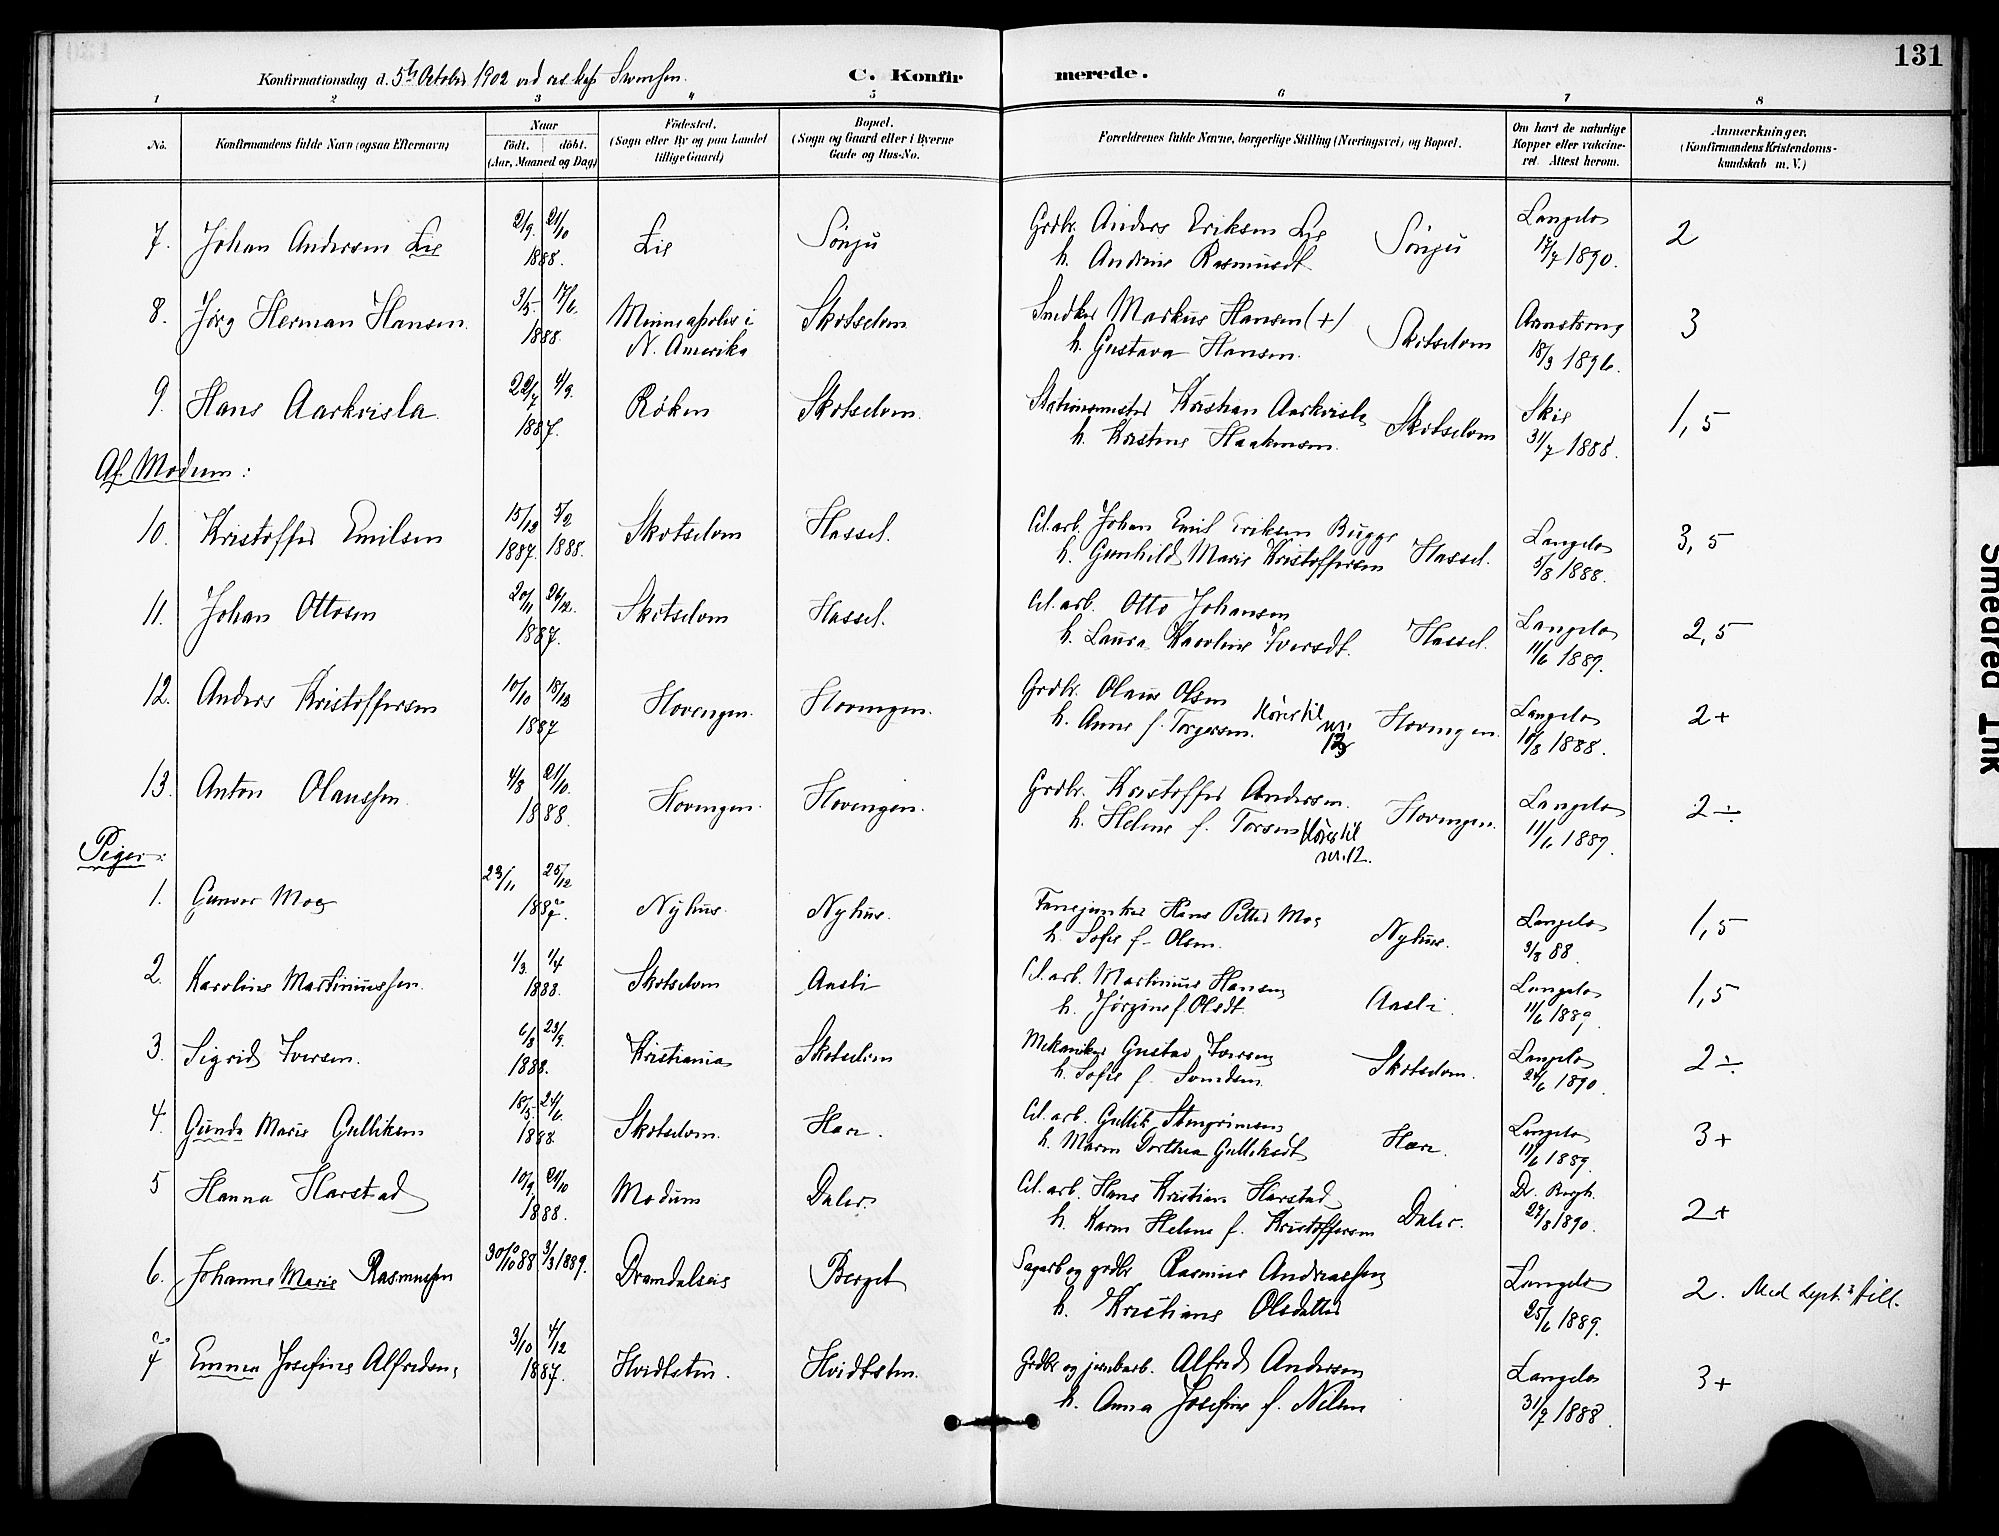 131
Konfirmationsdag d. 5te October 1902 ved res. kap. Svensen.
C. Konfirmerede.
1 2 3 4 5 6 7 8
No.
Konfirmandens fulde Navn (ogsaa Efternavn)
Naar
født. døbt.
(Aar, Maaned og Dag)
Fødested.
(Sogn eller By og paa Landet
tillige Gaard)
Bopæl.
(Sogn og Gaard eller i Byerne
Gade og Hus-No.
Forældrenes fulde Navne, borgerlige Stilling (Næringsvei) og Bopæl.
Om havt de naturlige
Kopper eller vakcine-
ret. Attest herom.
Anmærkninger.
(Konfirmandens Kristendoms-
kundskab m. V.)
7. Johan Andersen Lie 2/9. 21/10 1888. Lie Sönju Grdbr. Anders Eriksen Lie
h. Andrine Rasmusdt. Sönju Langelo 12/7 1890. 2
8. Jörg Herman Hansen 3/5. 17/6. 1888. Minneapolis i
N. Amerika Skotselven Snedker Markus Hansen (+)
h. Gustava Hansen. Skotselven Armstrong 18/3 1896. 3
9. Hans Aarkvisla 22/7 4/9. 1887. Röken Skotselven. Stationsmester Kristian Aarkvisla
h. Kirstine Haakensen. Skotselven Skie 31/7 1888. 1,5
Af Modum:
10. Kristoffer Emilsen 15/12 1887. 5/2 1888. Skotselven Hassel. Cel. arb. Johan Emil Eriksen Bugge
h. Gunhild Marie Kristoffersen Hassel. Langelo 5/8 1888. 3,5
11. Johan Ottosen 20/11 26/12. 1887. Skotselven Hassel. Cel. arb. Otto Johansen
h. Laura Karoline Iversdt. Hassel. Langelo 11/6 1889. 2,5
12. Anders Kristoffersen 10/10 18/12 1887 Hovengen. Hovengen. Grdbr. Olaus Olsen
h. Anne f. Torgersen. Hörer til nr. 13 Hovengen. Langelo 10/8 1888. 2+
13. Anton Olaussen. 4/8 21/10. 1888. Hovengen. Hovengen. Grdbr. Kristoffer Andersen.
h. Helene f. Torsen Hörer til nr. 12. Hovengen. Langelo 11/6 1889. 2÷
Piger:
1. Gunvor Moe 23/11 25/12 1887. Nyhus. Nyhus. Fanejunker Hans Petter Moe
h. Sofie f. Olsen. Nyhus. Langelo 3/8 88. 1,5
2. Karoline Martiniussen. 1/3. 1/4 1888. Skotselven Aasli Cel. arb. Martinius Hansen
h. Jörgine f. Olsdt. Aasli. Langelo 11/6 1889. 1,5
3. Sigrid Iversen. 6/8 23/9. 1888. Kristiania Skotselven Mekaniker Gustav Iversen
h. Sofie f. Svendsen. Skotselven. Langelo 24/6 1890. 2÷
4. Gunda Marie Gulliksen 18/5. 24/6. 1888. Skotselven. Hær. Cel. arb. Gullik Stengrimsen
h. Maren Dorthea Gulliksdt Hær. Langelo 11/6 1889. 3+
5 Hanna Harstad 10/9 21/10 1888. Modum Daler. Cel. arb. Hans Kristian Harstad
h. Karen Helene f. Kristoffersen Daler. Dr. Borgh. 27/8 1890. 2+
6. Johanne Marie Rasmussen 30/10 88 3/3 1889. Drændalseie Berget Sagarb og grdbr Rasmus Andreassen
h. Kristiane Olsdatter Langelo 25/6 1889. 2. Med dept.s till.
7 Emma Josefine Alfredsen, 3/10 4/12 1887. Hvidtsten. Hvidtsten. Grdbr og jernbarb. Alfred Andersen
h. Anna Josefine f. Nilsen Langelo 31/7 1888. 3+